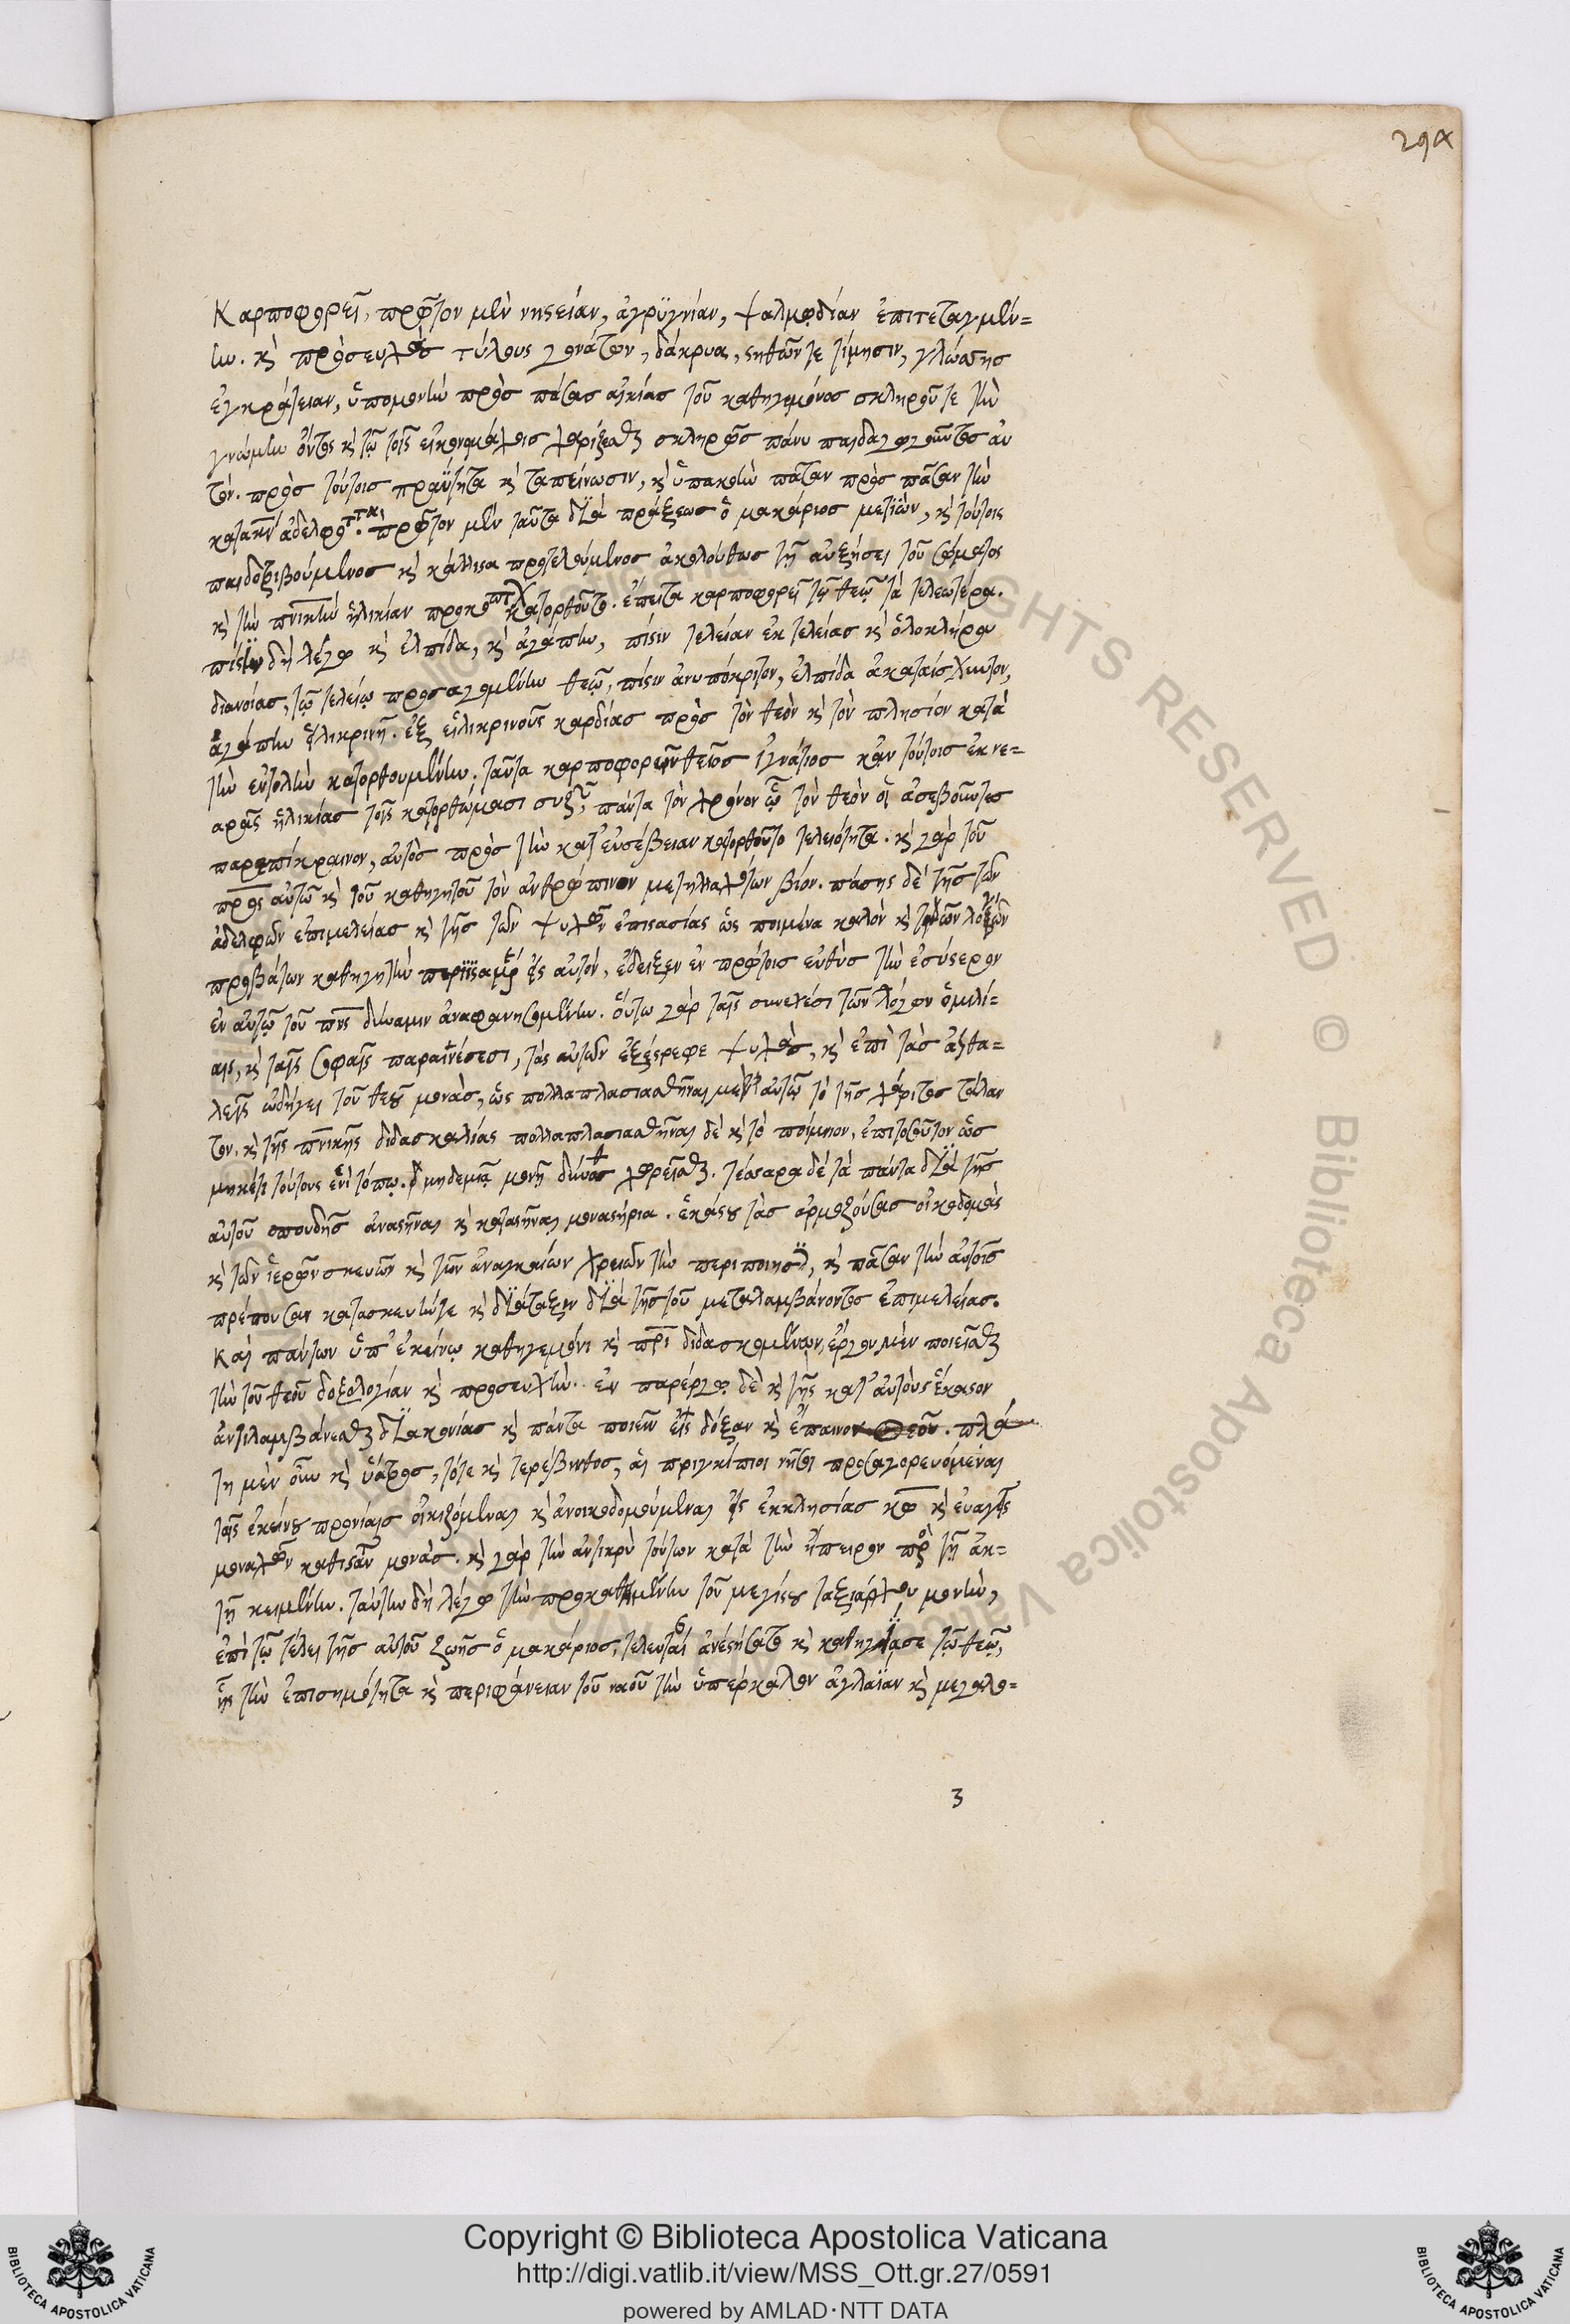 294
Καρποφορεῖ, πρῶτον μὲν νηστείαν, ἀγρϋπνίαν, ψαλμῳδίαν ἐπιτεταγμέν=
ην. κ̀ πρὸσευχὰς τύλους γονάτων, δάκρυα, στηθῶν τε τύπησιν, γλώσσης
ἐγκράτειαν, ὑπομονὴν πρὸς πάσας αἰκίας τοῦ καθηγεμόνος σκληροῦ τε τὴν
γνώμην ὄντος κ̀ τῷ τοῖς εἰκονομάχοις χαρίζεσθαι σκληρῶς πάνυ παιδαγωγοῦντος αὐ
τόν. πρὸς τούτοις πραΰτητα κ̀ ταπείνωσιν, κ̀ ὑπακοὴν πᾶσαν πρὸς πᾶσαν τὴν
ἀδελφότητα. πρῶτον μὲν ταῦτα διὰ πράξεως ὁ μακάριος μετϊὼν, κ̀ τούτοις
παιδοτριβούμενος κ̀ κάλλιστα προτελούμενος ἀκολούθως τῇ αὐξήσει τοῦ σώματος
κ̀ τὴν πνικὴν ἡλικίαν κατορθοῦτο. ἔπειτα καρποφορεῖ τῷ θεῷ τὰ τελεώτερα.
πίστιν δὴ λέγω κ̀ ἐλπίδα, κ̀ ἀγάπην, πίστιν τελείαν ἐκ τελείας κ̀ ὁλοκλήρου
διανοίας, τῷ τελείῳ προσαγομένην θεῷ, πίστιν ἀνυπόκριτον, ἐλπίδα ἀκαταίσχυντον,
ἀγάπην εἰλικρινῆ. ἐξ εἰλικρινοῦς καρδίας πρὸς τὸν θεὸν κ̀ τὸν πλησίον κατὰ
τὴν ἐντολὴν κατορθουμένην. ταῦτα καρποφορῶν θεῖος ἰγνάτιος κἀν τούτοις ἐκ νε=
αρᾶς ἡλικίας τοῖς κατορθώμασι συζῶν, πάντα τὸν χρόνον ᾧ τὸν θεὸν οἱ ἀσεβοῦντες
παρεπίκραινον, αὐτὸς πρὸς τὴν κατ᾽ εὐσέβειαν κατορθοῦτο τελειότητα. κ̀ γὰρ τοῦ
πρς αὐτῶ κ̀ τοῦ καθηγητοῦ τὸν ἀνθρώπινον μετηλλαχότων βίον. πάσης δὲ τῆς τῶν
ἀδελφῶν ἐπιμελείας κ̀ τῆς τῶν ψυχῶν ἐπιστασίας ὡς ποιμένα καλὸν κ̀ τῶν λογικῶν
προβάτων καθηγητὴν εἰς αὐτὸν, ἔδειξεν ἐν πρώτοις εὐθὺς τὴν ἐσύστερον
ἐν αὐτῷ τοῦ πνς δύναμιν ἀναφανησομένην. οὕτω γὰρ ταῖς συνεχέσι τῶν λόγων ὁμιλί=
αις, κ̀ ταῖς σοφαῖς παραινέσεσι, τὰς αὐτῶν ἐξέτρεφε ψυχὰς, κ̀ ἐπὶ τὰς ἀϊθα=
λεῖς ὡδήγει τοῦ θεοῦ μονὰς, ὡς πολλαπλασιασθῆναι μετ᾽ αὐτῷ τὸ τῆς χάριτος τάλαν
τον. κ̀ τῆς πνικῆς διδασκαλίας πολλαπλασιασθῆναι δὲ κ̀ τὸ ποίμνιον, ἐπιτοσοῦτον ὡς
μηκέτι τούτους ἑνὶ τόπῳ. μηδεμιᾷ μονῇ δύνασθαι χωρεῖσθαι. τέσσαρα δὲ τὰ πάντα διὰ τῆς
αὐτοῦ σπουδῆς ἀναστῆναι κ̀ καταστῆναι μοναστήρια. ἑκάστου τὰς ἁρμοζούσας οἰκοδομὰς
κ̀ τῶν ἱερῶν σκευῶν κ̀ τῶν ἀναγκαίων χρειῶν τὴν περιποίησιν, κ̀ πᾶσαν τὴν αὐτοῖς
πρέπουσαν κατασκευήν τε κ̀ διάταξιν διὰ τῆς τοῦ μεταλαμβάνοντος ἐπιμελείας.
Καὶ πάντων ὑπ᾽ ἐκείνῳ καθηγεμόνι κ̀ πρὶ διδασκομένων, ἔργον μὲν ποιεῖσθαι
τὴν τοῦ θεοῦ δοξολογίαν κ̀ προσευχὴν. ἐν παρέργῳ δὲ κ̀ τῆς κατ᾽ αὐτοὺς ἕκαστον
ἀντιλαμβάνεσθαι διακονίας κ̀ πάντα ποιεῖν εἰς δόξαν κ̀ ἔπαινον θεοῦ. πλά
τη μὲν οὖν κ̀ ὑάτρος, τότε κ̀ τερέβινθος, αἱ πριγκίπιοι νῆσοι προσαγορευόμεναι
ταῖς ἐκείνου προνοίαις οἰκιζόμεναι κ̀ ἀνοικοδομούμεναι εἰς ἐκκλησίας κ̀ εὐαγεῖς
μοναχῶν καθιστᾶν μονὰς. κ̀ γὰρ τὴν ἀντικρὺ τούτων κατὰ τὴν ἤπειρον πρὸς τῇ ἀκ=
τῇ κειμένην. ταύτην δὴ λέγω τὴν προκαθημένην τοῦ μεγίστου ταξιάρχου μονὴν,
ἐπὶ τῷ τέλει τῆς αὐτοῦ ζωῆς ὁ μακάριος, τελευταῖον ἀνεστήσατο κ̀ καθηγίασε τῷ θεῷ,
ἧς τὴν ἐπισημότητα κ̀ περιφάνειαν τοῦ ναοῦ τὴν ὑπέρκαλον ἀγλαΐαν κ̀ μεγαλο=
3
Copyright © Biblioteca Apostolica Vaticana
http://digi.vatlib.it/view/MSS_Ott.gr.27/0591
powered by AMLAD·NTT DATA